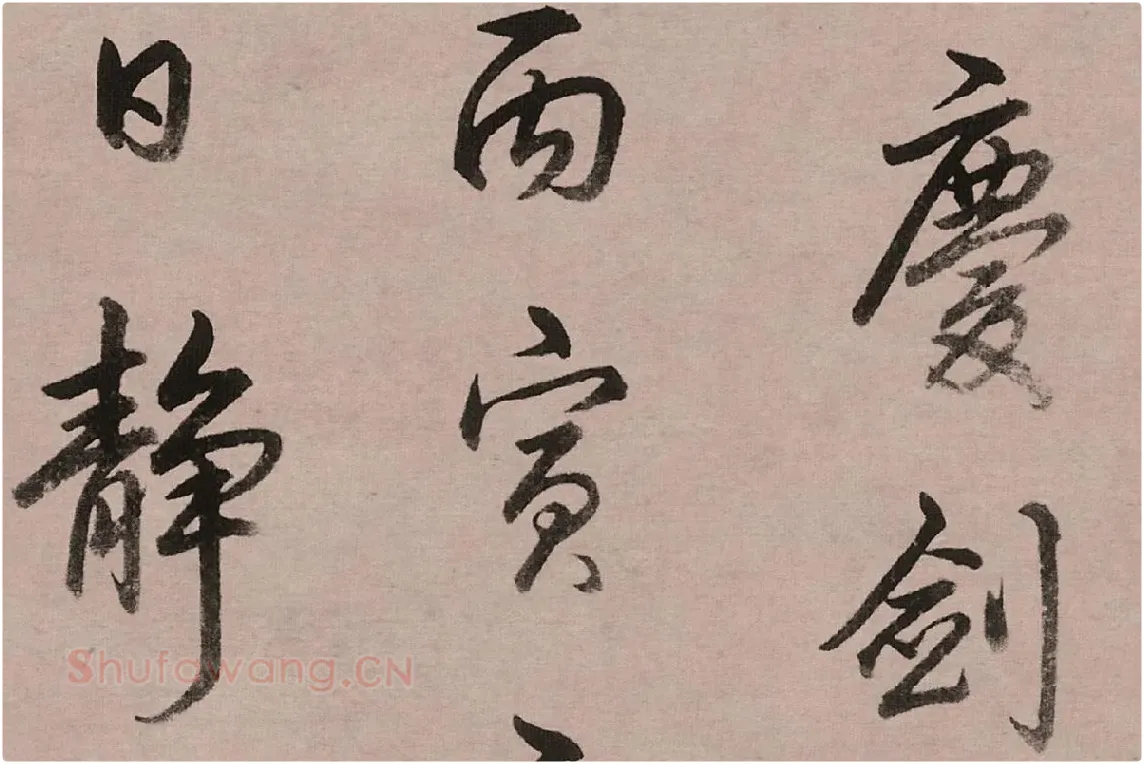 慶劍
丙寅
日静
Shufawang.CN